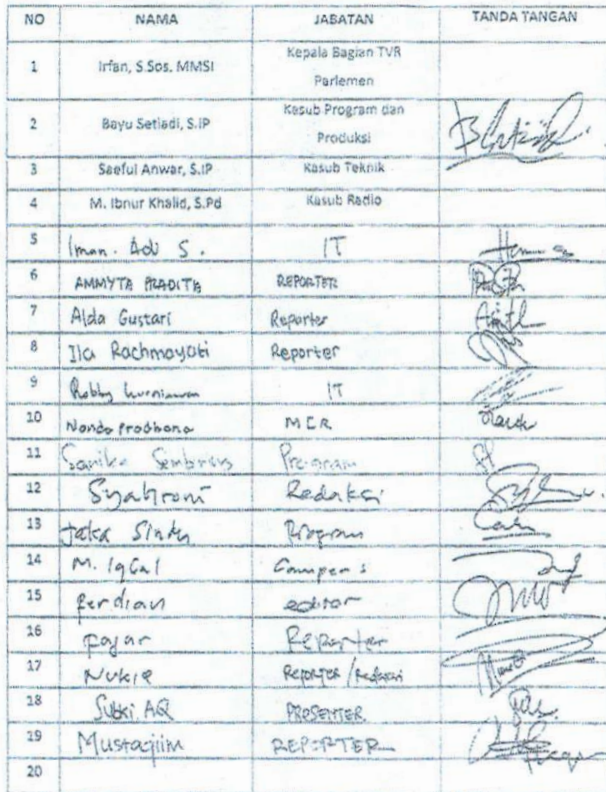 NO NAMA JABATAN TANDA TANGAN
1 Irfan, S.Sos. MMSI Kepala Bagian TVR
Parlemen
2 Bayu Setiadi, S.IP Kasub Program dan
Produksi
3 Saeful Anwar, S.IP Kasub Teknik
4 M. Ibnur Khalid, S.Pd Kasub Radio
5 Iman. Adi S. IT
6 AMMYTA PRADITA REPORTER
7 Alda Gustari Reporter
8 Ila Rachmayati Reporter
9 Robby kurniawan IT
10 Nanda Pradhana MCR
11 Sanika Program
12 Syahroni Redaksi
13 Jaka Sindu Program
14 M. Iqbal
15 Ferdian editor
16 Fajar Reporter
17 Nukie Reporter / Redaksi
18 Subki AQ PRESENTER
19 Mustaqiim REPORTER
20